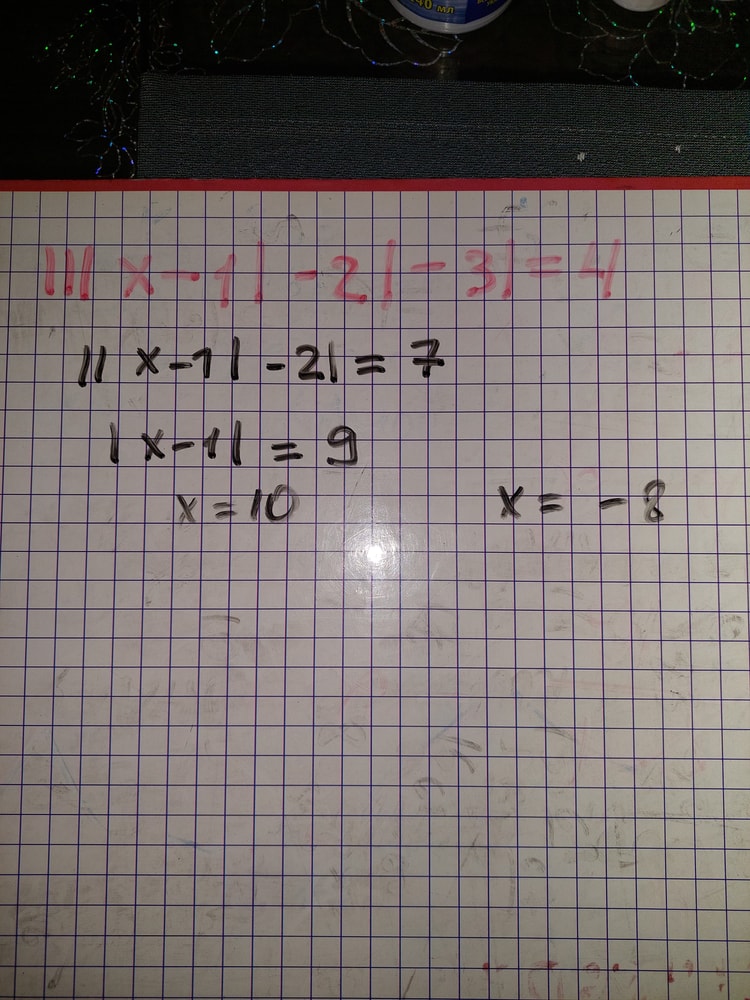 40 мл
||| x - 1 | - 2 | - 3 | = 4
|| x - 1 | - 2 | = 7
| x - 1 | = 9
x = 10 x = - 8